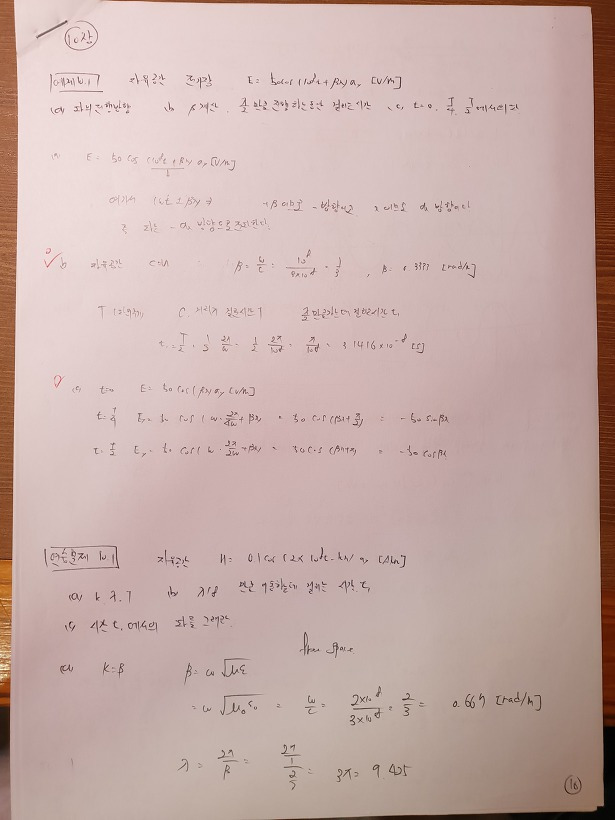 10장
예제 10.1 자유공간 전기장 E = 50 cos (10⁸t + βx) ay [V/m]
(a) 파의 진행방향 (b) β 계산, 반 파장 진행하는 동안 걸리는 시간 t₁ (c) t=0, T/4, T/2 에서의 파
(a) E = 50 cos (10⁸t + βx) ay [V/m]
여기서 (ωt ± βx) ⇒ +β이므로 -방향이고 x이므로 ax 방향이다
파는 -ax 방향으로 진행한다.
b 자유공간 β = ω/c = 10⁸/3×10⁸ = 1/3, β = 0.3333 [rad/m]
t₁ = T/2 = 1/2 2π/ω = 1/2 2π/10⁸ = π/10⁸ = 3.1416×10⁻⁸ [s]
(c) t=0 E = 50 cos(βx) ay [V/m]
t = T/4 Ey = 50 cos(ω·2π/4ω + βx) = 50 cos(βx + π/2) = -50 sinβx
t = T/2 Ey = 50 cos(ω·2π/2ω + βx) = 50 cos(βx+π) = -50 cosβx
연습문제 10.1 자유공간 H = 0.1 cos (2×10⁸t - kx) ay [A/m]
(a) k, λ, T (b) λ/8 만큼 이동하는데 걸리는 시간 t₁
(c) 시간 t₁ 에서의 파를 그려라.
free space
(a) K=β β = ω√με
= ω√μ₀ε₀ = ω/c = 2×10⁸/3×10⁸ = 2/3 = 0.667 [rad/m]
λ = 2π/β = 3π = 9.425
10